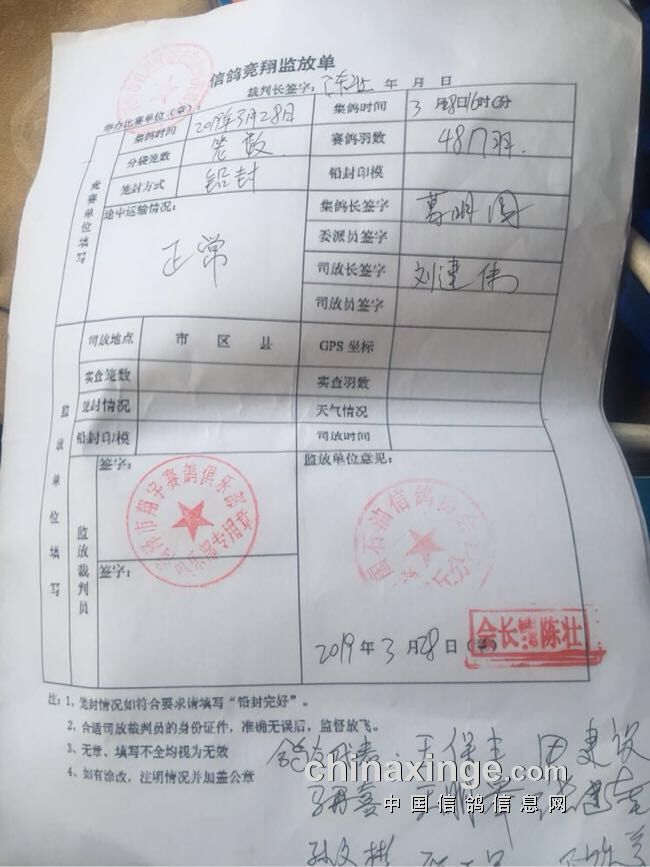 信鸽竞翔监放单
裁判长签字： 年 月 日
举办比赛单位（章）：
集鸽时间 2019年3月28日 集鸽时间 3月28日16时0分
分袋笼数 笼数 赛鸽羽数 487羽.
笼封方式 铅封 铅封印模
竞赛单位填写
途中运输情况： 正常
集鸽长签字
委派员签字
司放长签字 刘建伟
司放员签字
司放地点 市 区 县 GPS 坐标
实查笼数 实查羽数
笼封情况 天气情况
铅封印模 司放时间
监放单位填写
监放裁判员
签字： 监放单位意见：
市翔宇赛鸽俱乐部
俱乐部专用章
石油信鸽协会
签字：
2019年3月28日（章）
会长 陈壮
注：1、笼封情况如符合要求请填写“铅封完好”。
2、合适司放裁判员的身份证件，准确无误后，监督放飞。
3、无章、填写不全均视为无效
4、如有涂改，注明情况并加盖公章
田建设
chinaxinge.com
中国信鸽信息网
孙文彬